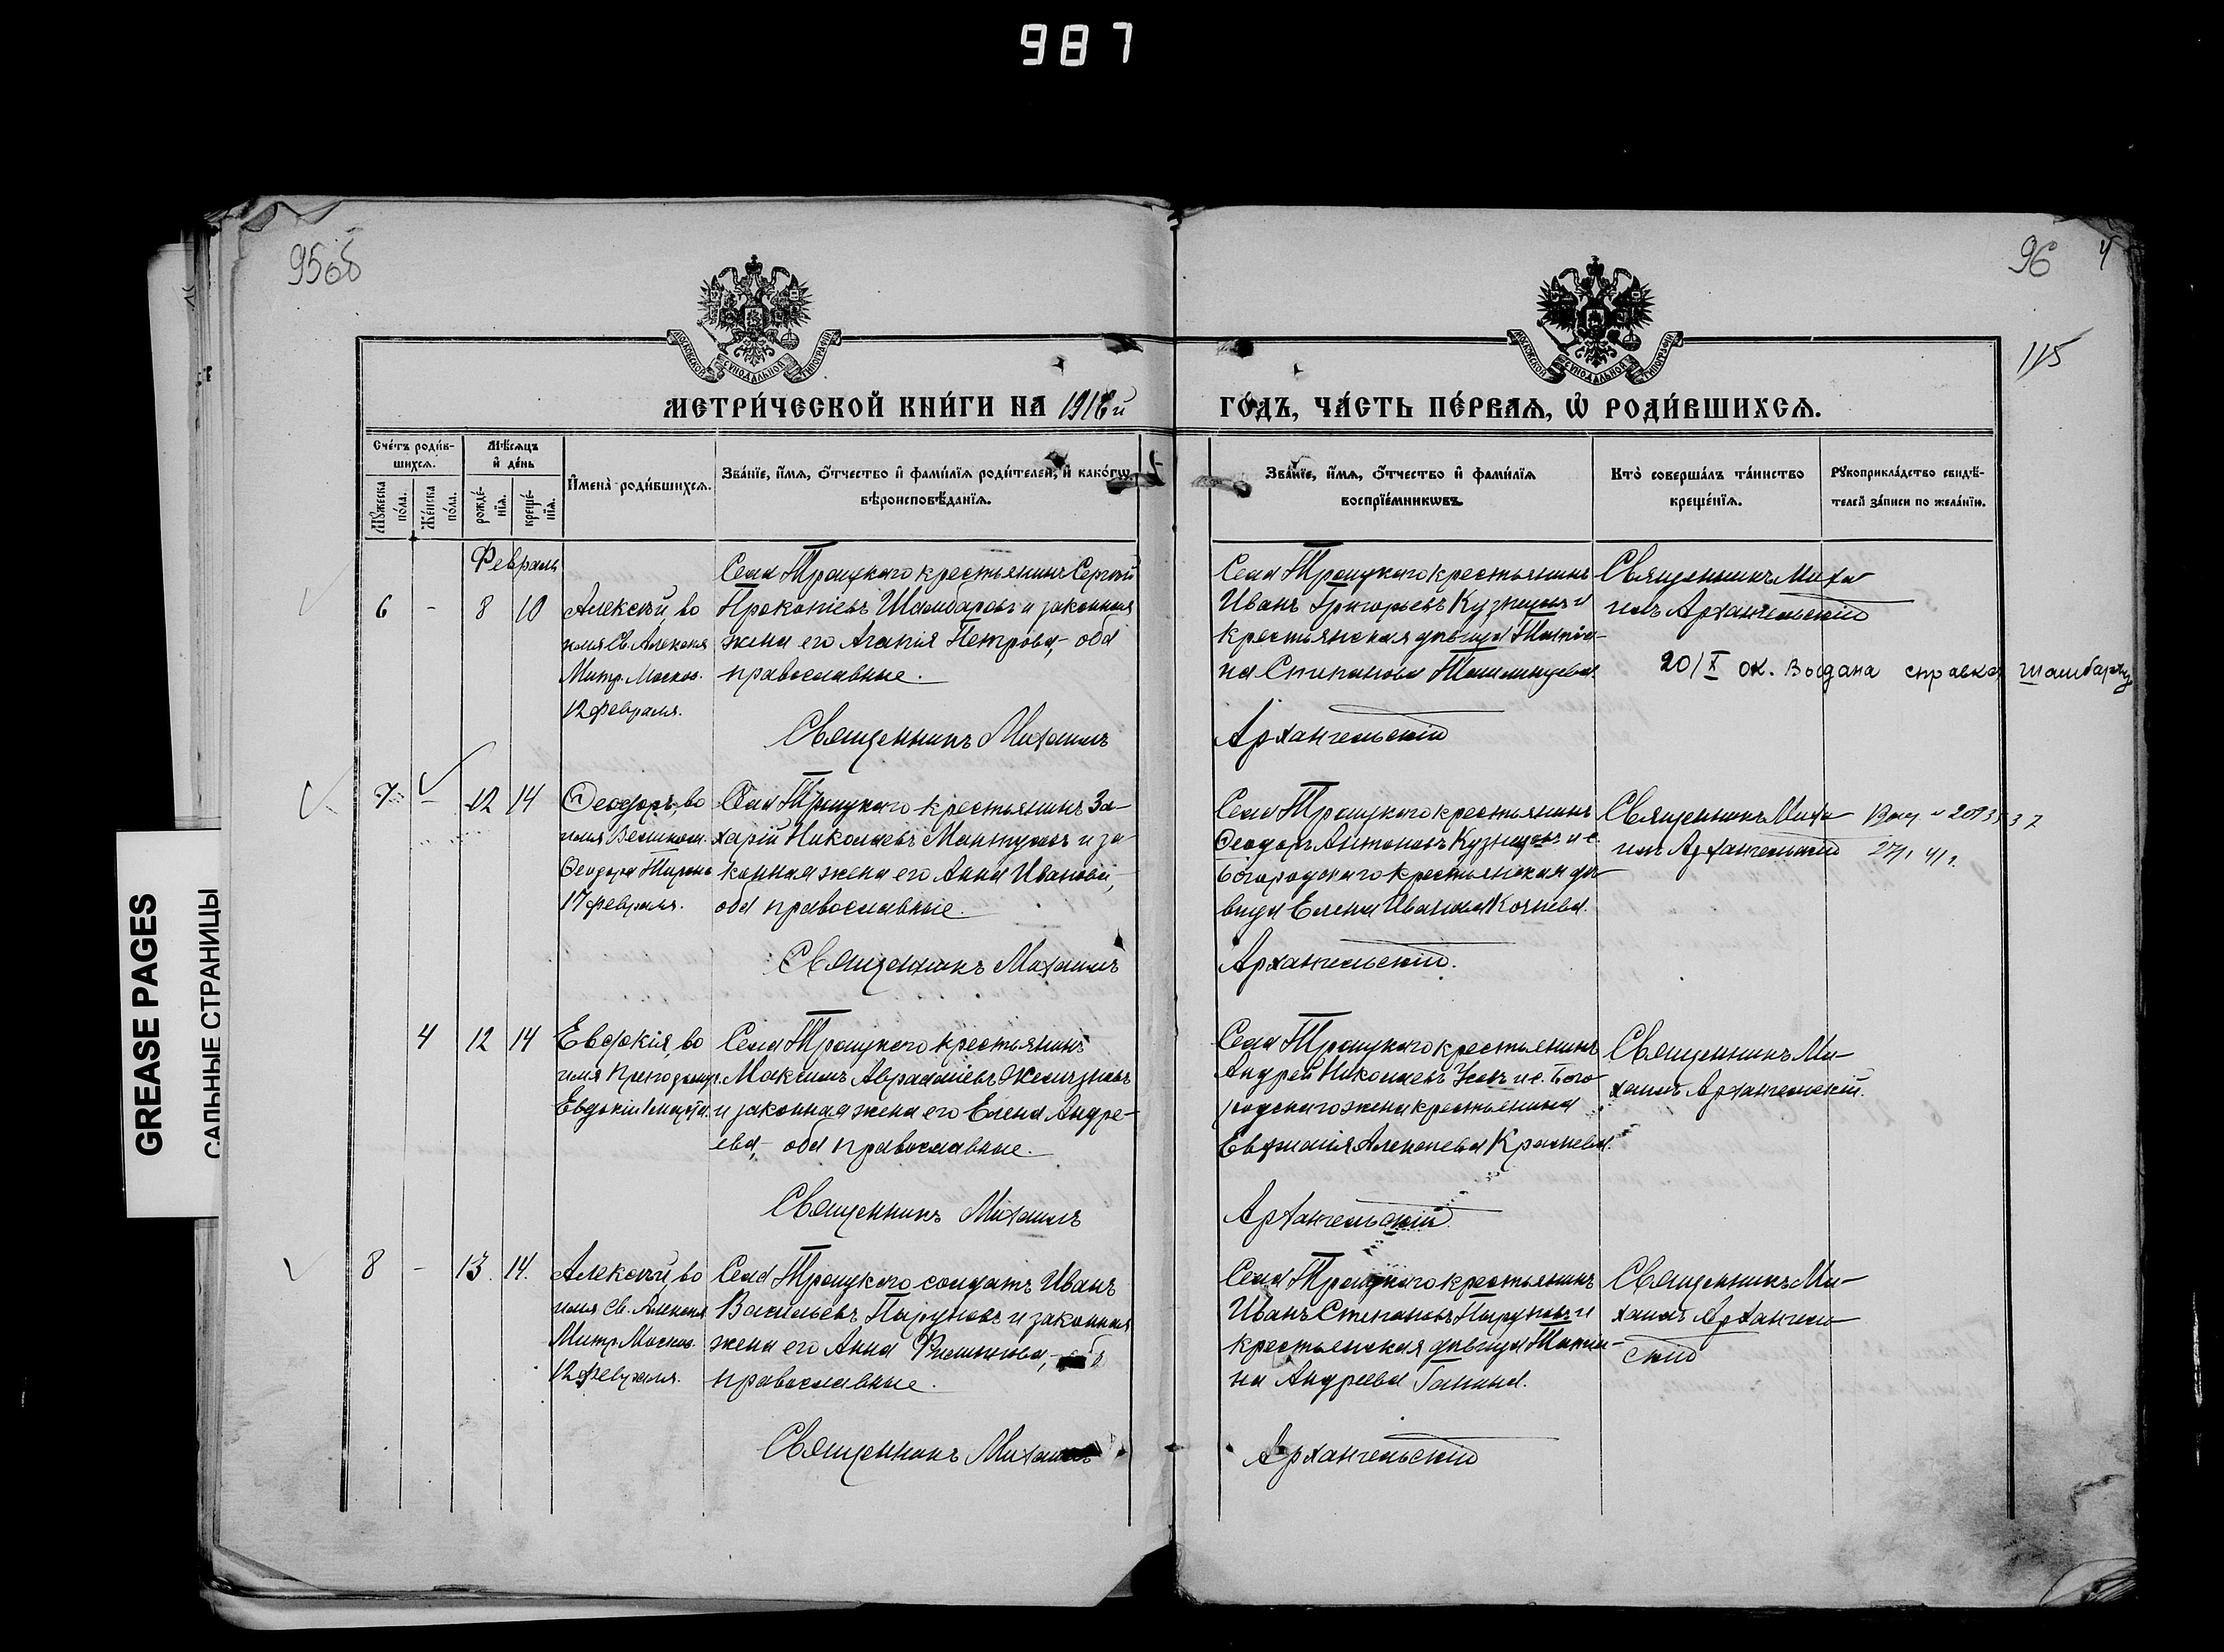 987
95об
96
4
115
МОСКОВСКОЙ СѴНОДАЛЬНОЙ ТИПОГРАФІИ
МОСКОВСКОЙ СѴНОДАЛЬНОЙ ТИПОГРАФІИ
МЕТРИ́ЧЕСКОЙ КНИ́ГИ НА 1916й
ГО́ДЪ, ЧА́СТЬ ПЕ́РВАѦ, Ѡ҆ РОДИ́ВШИХСѦ.
Сче́тъ роди́в-
шихсѧ.
Мѣ́сѧцъ
и҆ де́нь
Мꙋ́жеска
по́ла.
Же́нска
по́ла.
рожде́-
нїѧ.
креще́-
нїѧ.
И҆мена̀ роди́вшихсѧ.
Зва́нїе, и҆́мѧ, ѻ҆́тчество и҆ фами́лїѧ роди́телей, и҆ како́гѡ
вѣроисповѣ́данїѧ.
Зва́нїе, и҆́мѧ, ѻ҆́тчество и҆ фами́лїѧ
воспрїе́мникѡвъ.
Кто̀ соверша́лъ та́инство
креще́нїѧ.
Рꙋкоприкла́дство свидѣ́-
телей за́писи по жела́нїю.
Февраль
6 - 8 10
Алексѣй, во
имя Св. Алексія
Митр. Москов.
12 февраля.
Села Троицкаго крестьянинъ Сергѣй
Прокопіевъ Шамбаровъ и законная
жена его Агапія Петрова, оба
православные.
Священникъ Михаилъ
Села Троицкаго крестьянинъ
Иванъ Григорьевъ Кузнецовъ и
крестьянская дѣвица Татіа-
на Степанова
Архангельскій
Священникъ Миха-
илъ Архангельскій
20/X ок. Выдана справка Шамбарову
7 - 12 14
Ѳеодоръ, во
имя Великом.
Ѳеодора Тирона
17 февраля.
Села Троицкаго крестьянинъ За-
харій Николаевъ и за-
конная жена его Анна Иванова,
оба православные.
Священникъ Михаилъ
Села Троицкаго крестьянинъ
Ѳеодоръ Антоновъ Кузнецовъ и с.
Богородскаго крестьянская дѣ-
вица Елена Иванова
Архангельскій.
Священникъ Миха-
илъ Архангельскій
4 12 14
Евдокія, во
имя Преподомуч.
Евдокіи 1 марта.
Села Троицкаго крестьянинъ
Максимъ Авраміевъ Желѣзновъ
и законная жена его Елена Андре-
ева, оба православные.
Священникъ Михаилъ
Села Троицкаго крестьянинъ
Андрей Николаевъ и с. Бого-
родскаго жена крестьянина
Евфимія Алексѣева
Архангельскій
Священникъ Ми-
хаилъ Архангельскій.
8 - 13. 14.
Алексѣй, во
имя Св. Алексія
Митр. Москов.
12 февраля.
Села Троицкаго солдатъ Иванъ
Васильевъ Пыруновъ и законная
жена его Анна Филиппова,
православные.
Священникъ Михаилъ
Села Троицкаго крестьянинъ
Иванъ Степановъ Пыруновъ и
крестьянская дѣвица Татіа-
на Андреева Ганина.
Архангельскій
Священникъ Ми-
хаилъ Архангель-
скій
GREASE PAGES
САЛЬНЫЕ СТРАНИЦЫ